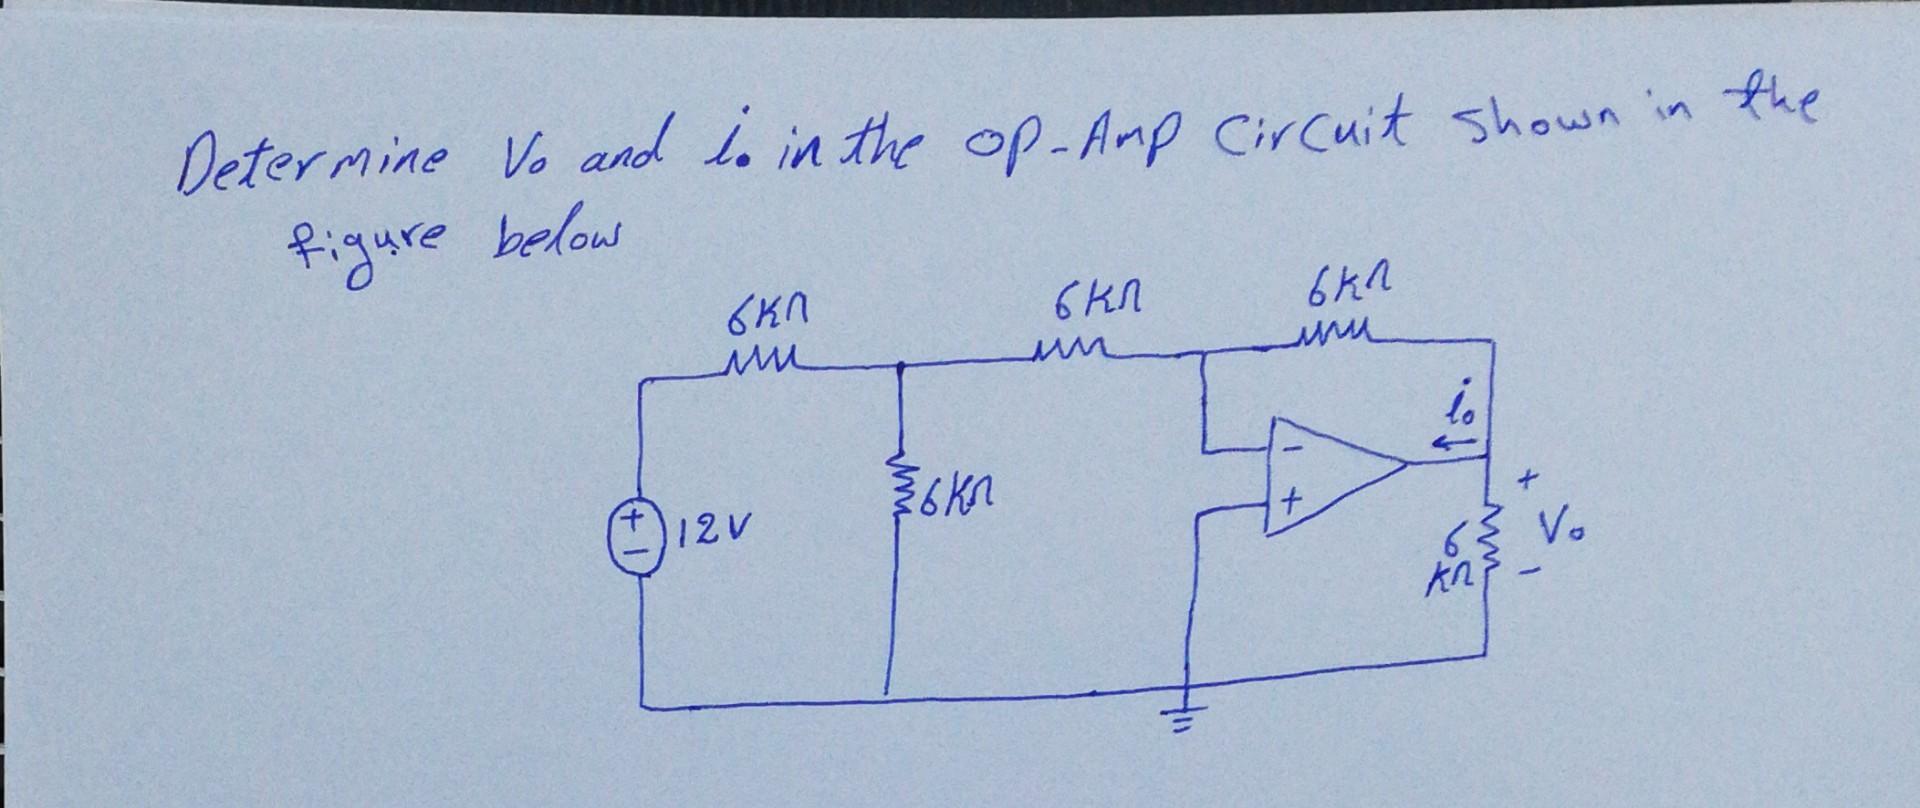 Determine Vo and io in the op-Amp Circuit shown in the
figure below
6KΩ
6KΩ
6KΩ
io
-
+
+
6KΩ
+
-
12V
Vo
6
KΩ
-